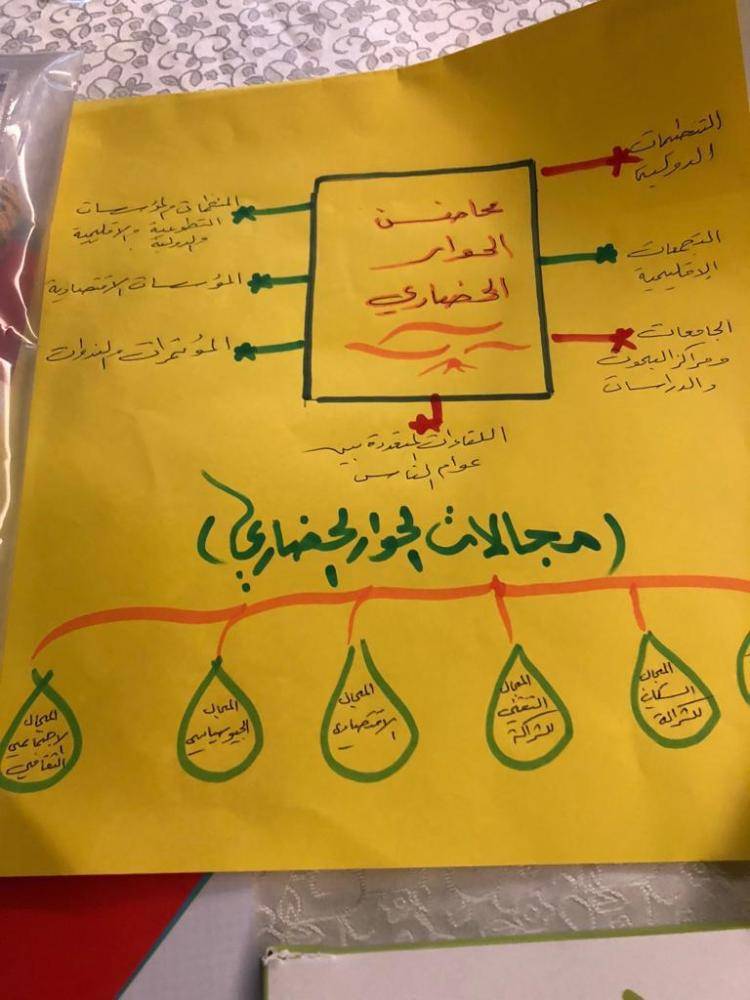 محاضن
الحوار
الحضاري
التنظيمات
الدولية
التجمعات
الإقليمية
الجامعات
ومراكز البحوث
والدراسات
المنظمات والمؤسسات
التطوعية والاقليمية
والدولية
المؤسسات الاقتصادية
المؤتمرات والندوات
اللقاءات المتعددة بين
عوام الناس
(مجالات الحوار الحضاري)
المجال
السكاني
للشراكة
المجال
التقني
للشراكة
المجال
الاقتصادي
المجال
الجيوسياسي
المجال
الاجتماعي
الثقافي